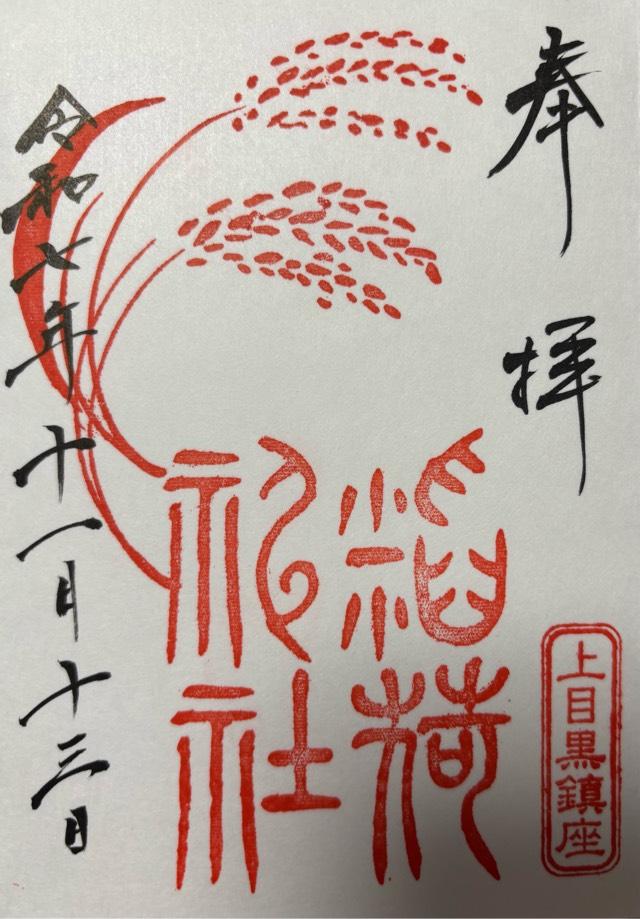 奉拝
上目黒鎮座
稲荷
神社
令和七年十一月十三日